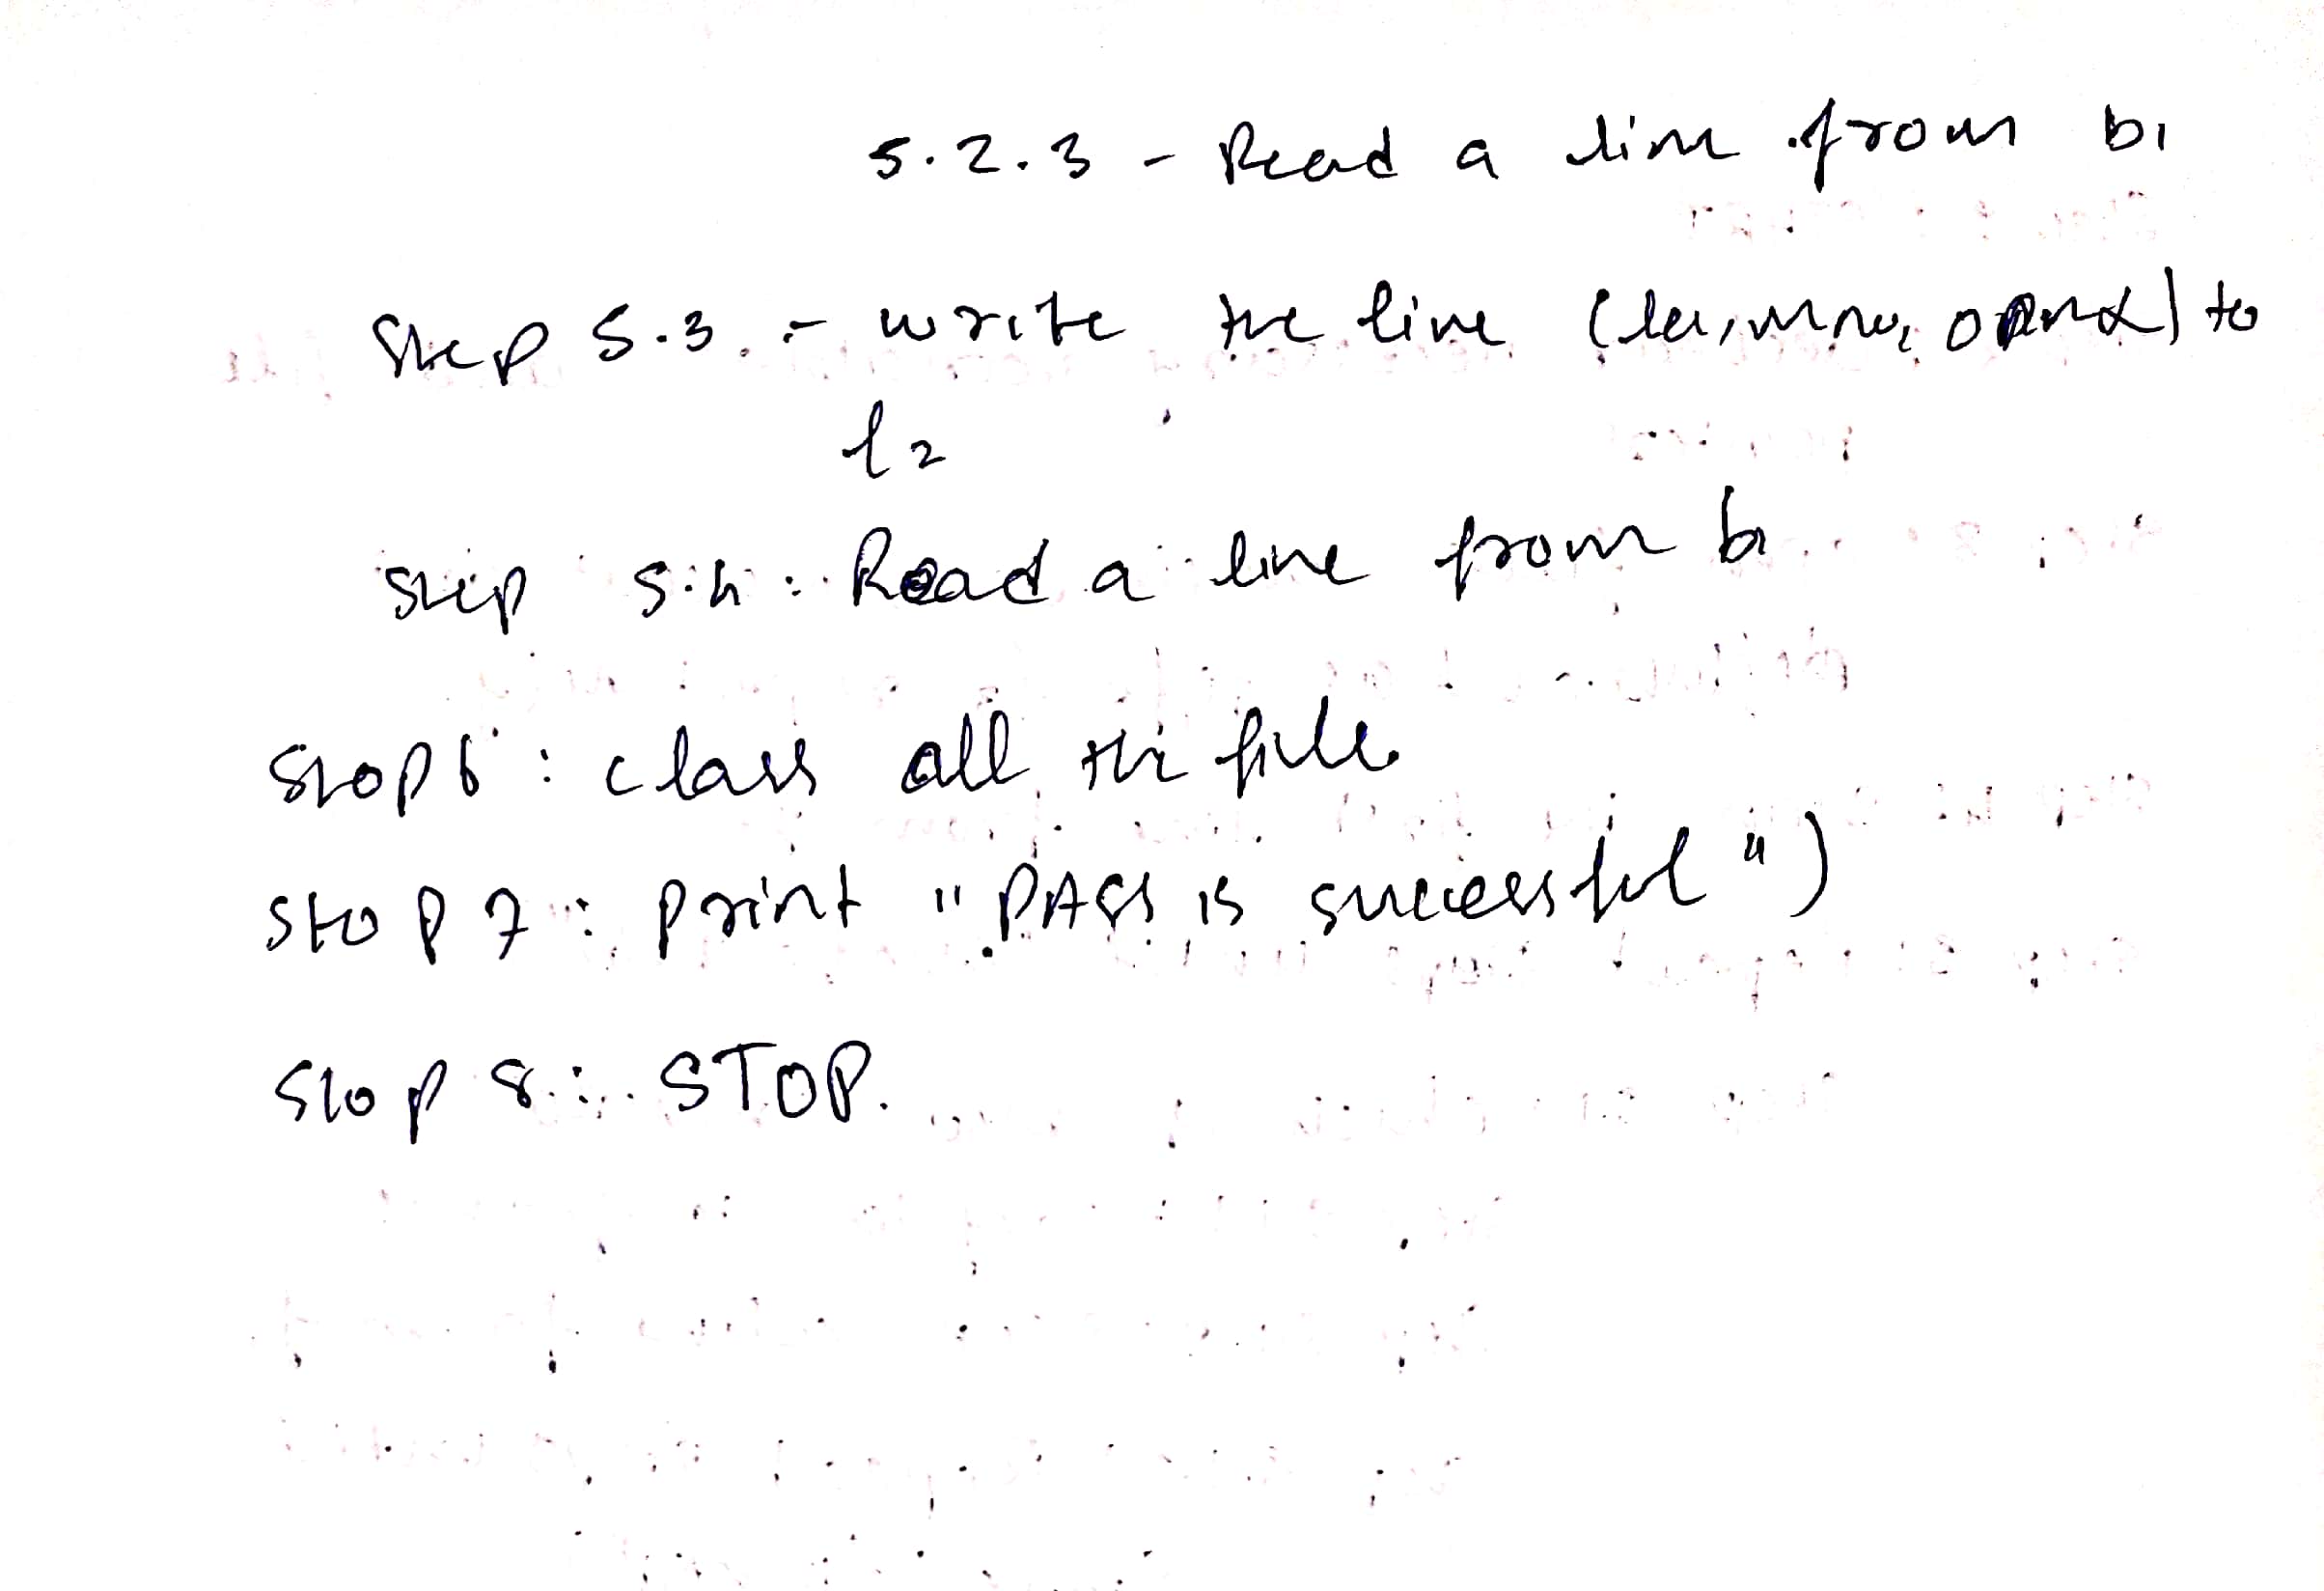 5.2.3 - Read a line from b1
Step 5.3 :- write the line (la, mne, opnd) to
f2
step 5.4 : Read a line from b1
Step 6 : class all the file
Step 7 : print "PASS is successful")
Step 8 : STOP.